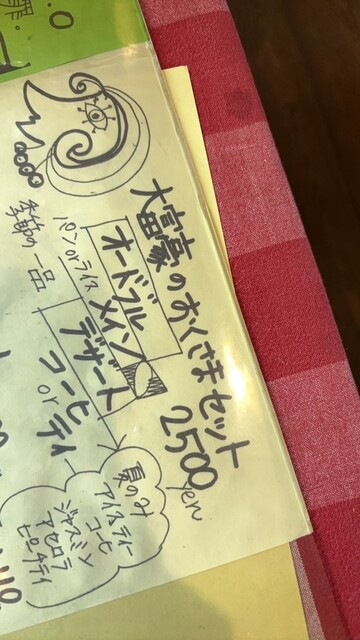 罪。
大富豪のおくさまセット
2500yen
オードブル
パンorライス
メイン
季節の一品
デザート
コーヒ
or
ティ
夏のみ
アイスティー
コーヒ
ジャスミン
アセロラ
ピーチティ